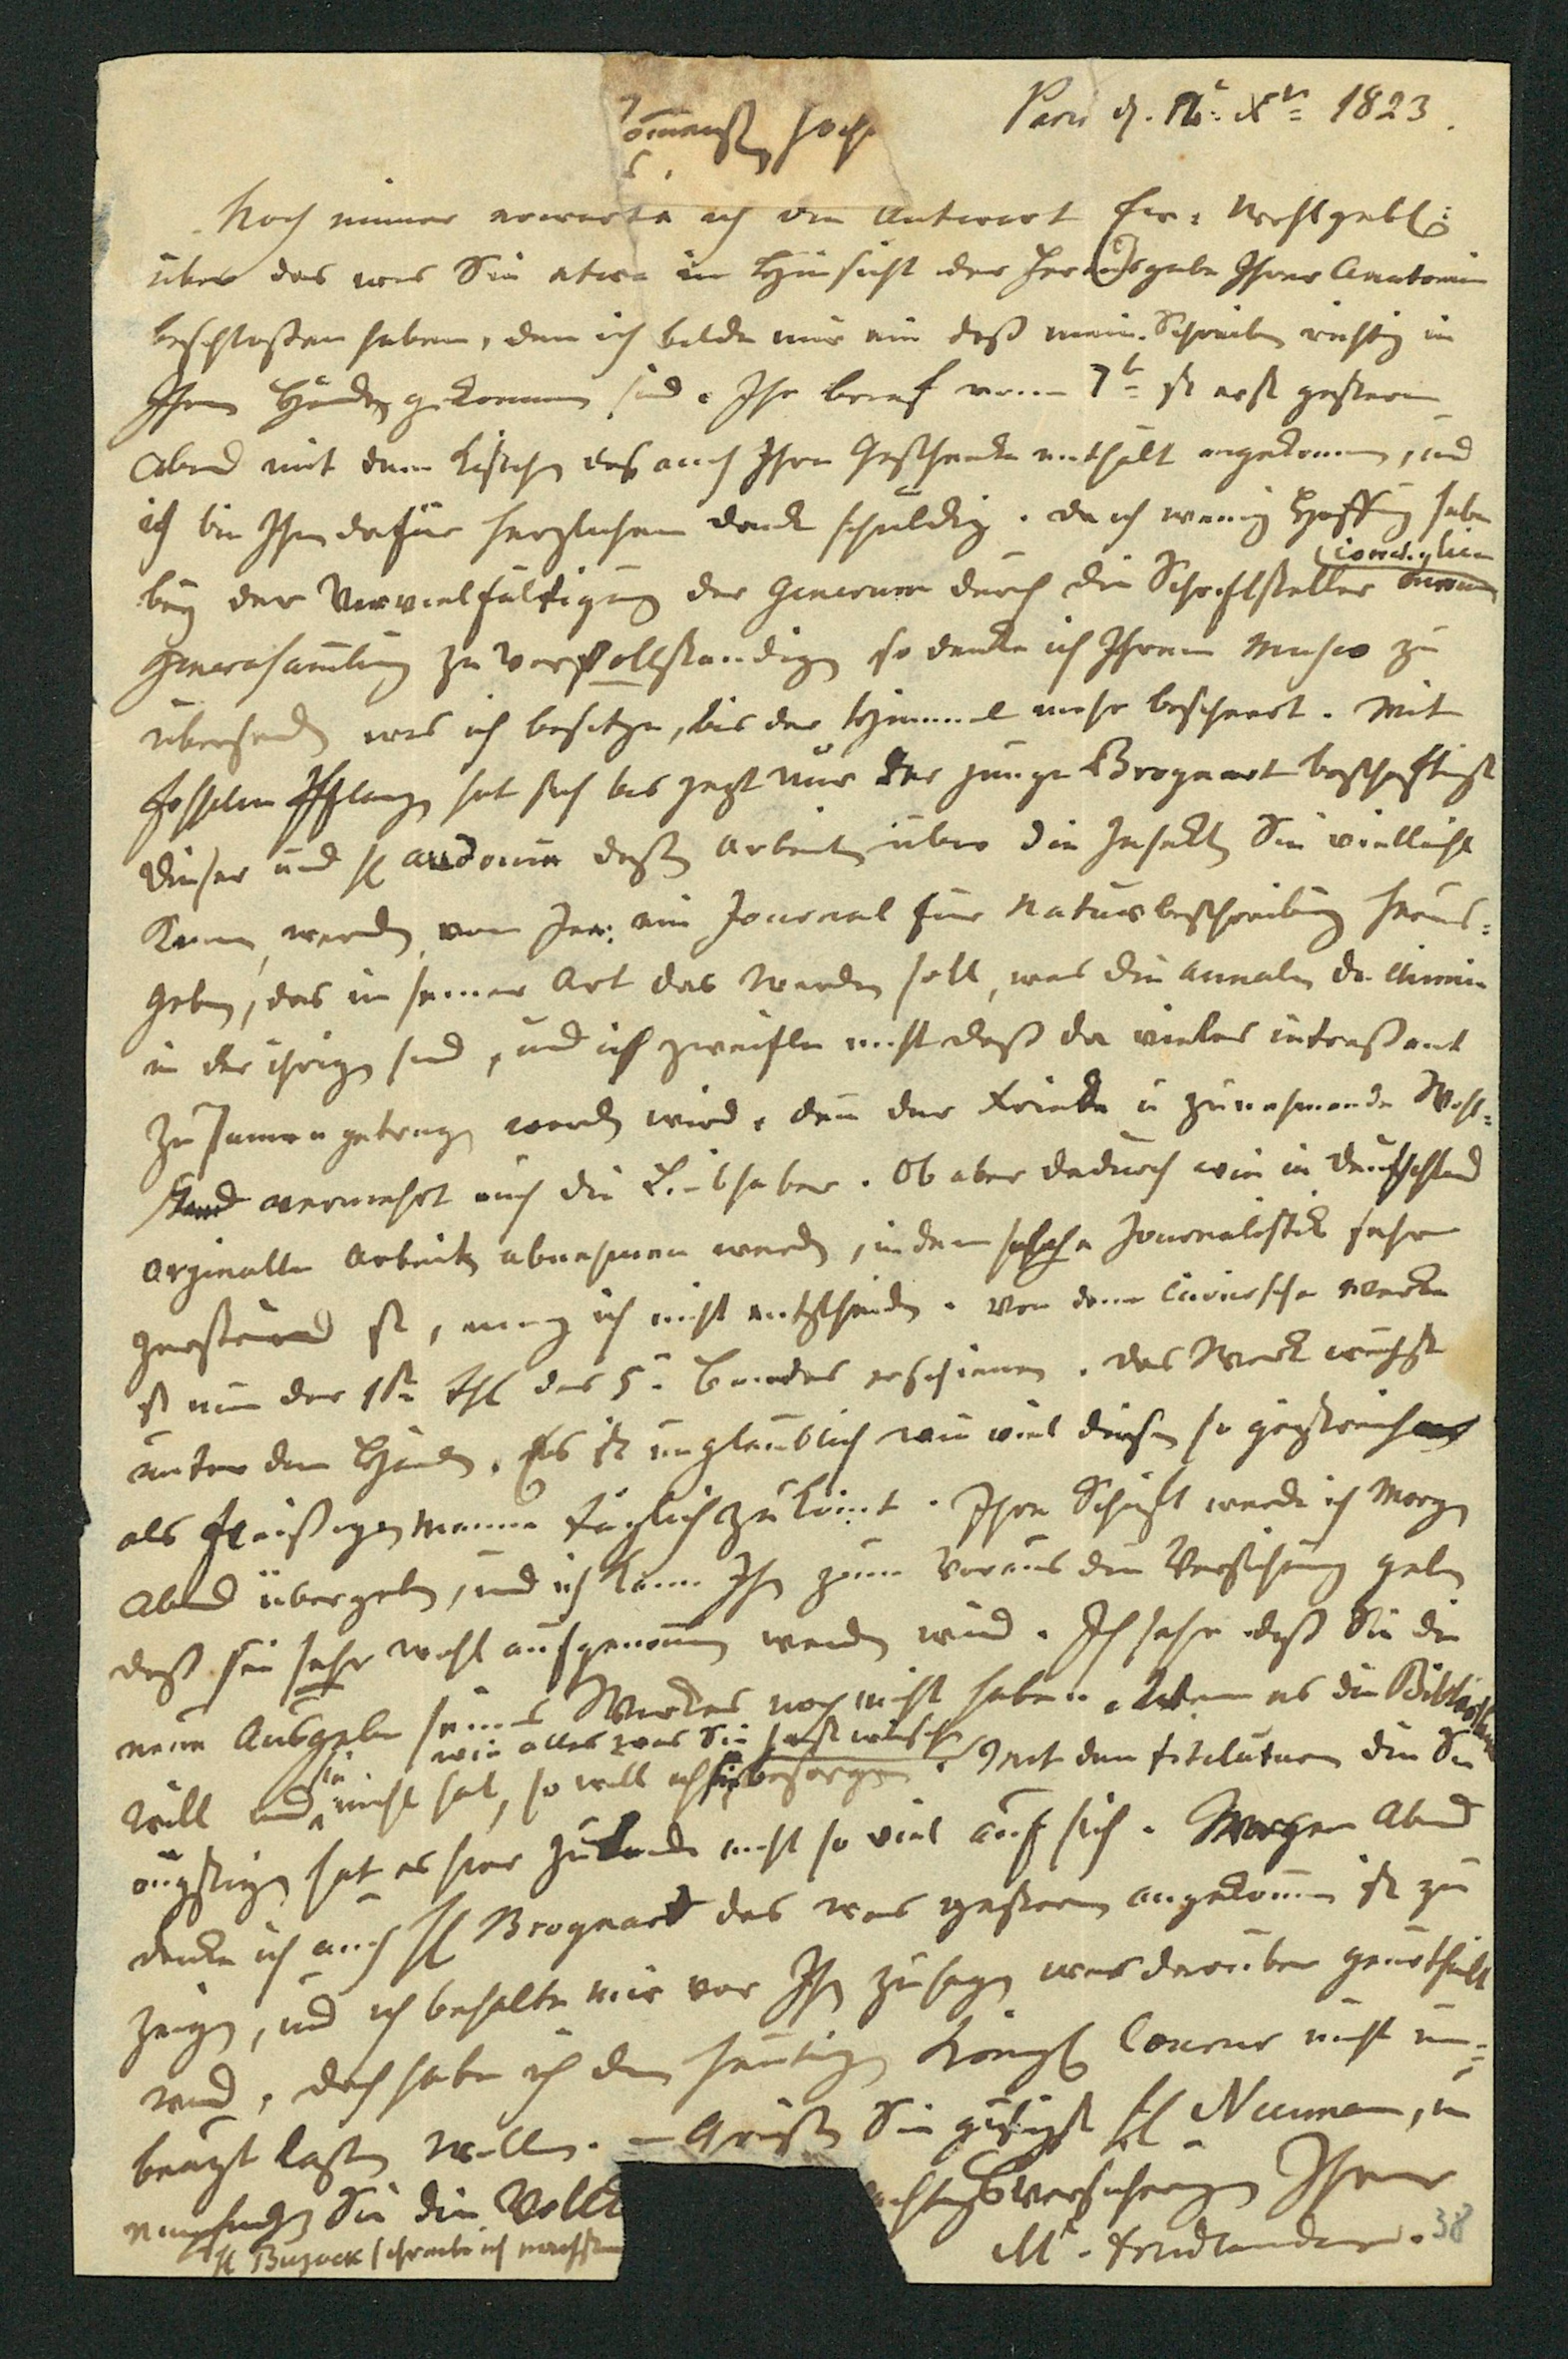 Paris d. 12t. Xbr 1823.
Noch immer erwarte ich die Antwort Ew: Wohlgeb:
über das was Sie etwa in Hinsicht der Herausgabe Ihrer Anatomie
beschloßen haben, denn ich bilde mir ein daß mein Schreiben richtig in
Ihren Händen gekommen sind. Ihr Brief vom 7t ist erst gestern
Abend mit dem Kistchen das auch Ihre Geschenke enthält angekommen, und
ich bin Ihnen dafür herzlichen Dank schuldig. Da ich wenig Hoffnung habe
bey der Vervielfältigung der Generum durch die Schriftsteller
Generasammlung zu vervollständigen so denke ich Ihrem Museo zu
übersenden was ich besitze, bis der Himmel mehr bescheert. Mit
fossilen Pflanzen hat sich bis jezt nur der junge Brogniart beschäftigt
Dieser und H Audouin deßen Arbeiten über die Insekten Sie vielleicht
kennen, werden vom Jan: ein Journal für Naturbeschreibung heraus-
geben, das in seiner Art das werden soll, was die Annalen de Chimie
in der ihrigen sind, und ich zweifle nicht daß da vieles intreßant
zusammengetragen werden wird. denn der Friede u zunehmende Wohl-
stand vermehrt auch die Liebhaber. Ob aber dadurch wie in Deutschland
orginelle Arbeiten abnehmen werden, indem solche Journalistik sehr
zerstreuend ist, mag ich nicht entscheiden. Von dem Cuvierschen Werke
ist nun der 1ste Thl des 5t Bandes erschienen. Das Werk wächst
unter den Händen. Es ist unglaublich wie viel diesem so geistreichen
als fleißigen Manne täglich zukömt. Ihre Schrift werde ich Morgen
Abend übergeben, und ich kann Ihnen zum Voraus die Versicherung geben
daß sie sehr wohl aufgenommen werden wird. Ich sehe daß Sie die
neue Ausgabe seines Werkes noch nicht haben. Wenn es die Bibliothek
wie alles was Sie sonst wünschen
will und sie nicht hat, so will ich sie besorgen. Mit den Titulaturen die Sie
ängstigen hat es hier zu Lande nicht so viel auf sich. Morgen Abend
denke ich auch H Brogniart das was gestern angekommen ist zu
zeigen, und ich behalte mir vor Ihnen zu sagen was darüber geurtheilt
wird, doch habe ich den heutigen Königl Courier nicht un-
benuzt laßen wollen. – Grüßen Sie gütigst H Neumann, u
empfangen Sie die Vollk
achtungsversicherung Ihres
Mr. Friedlander. 38
H Bujack schreibe ich nächstens